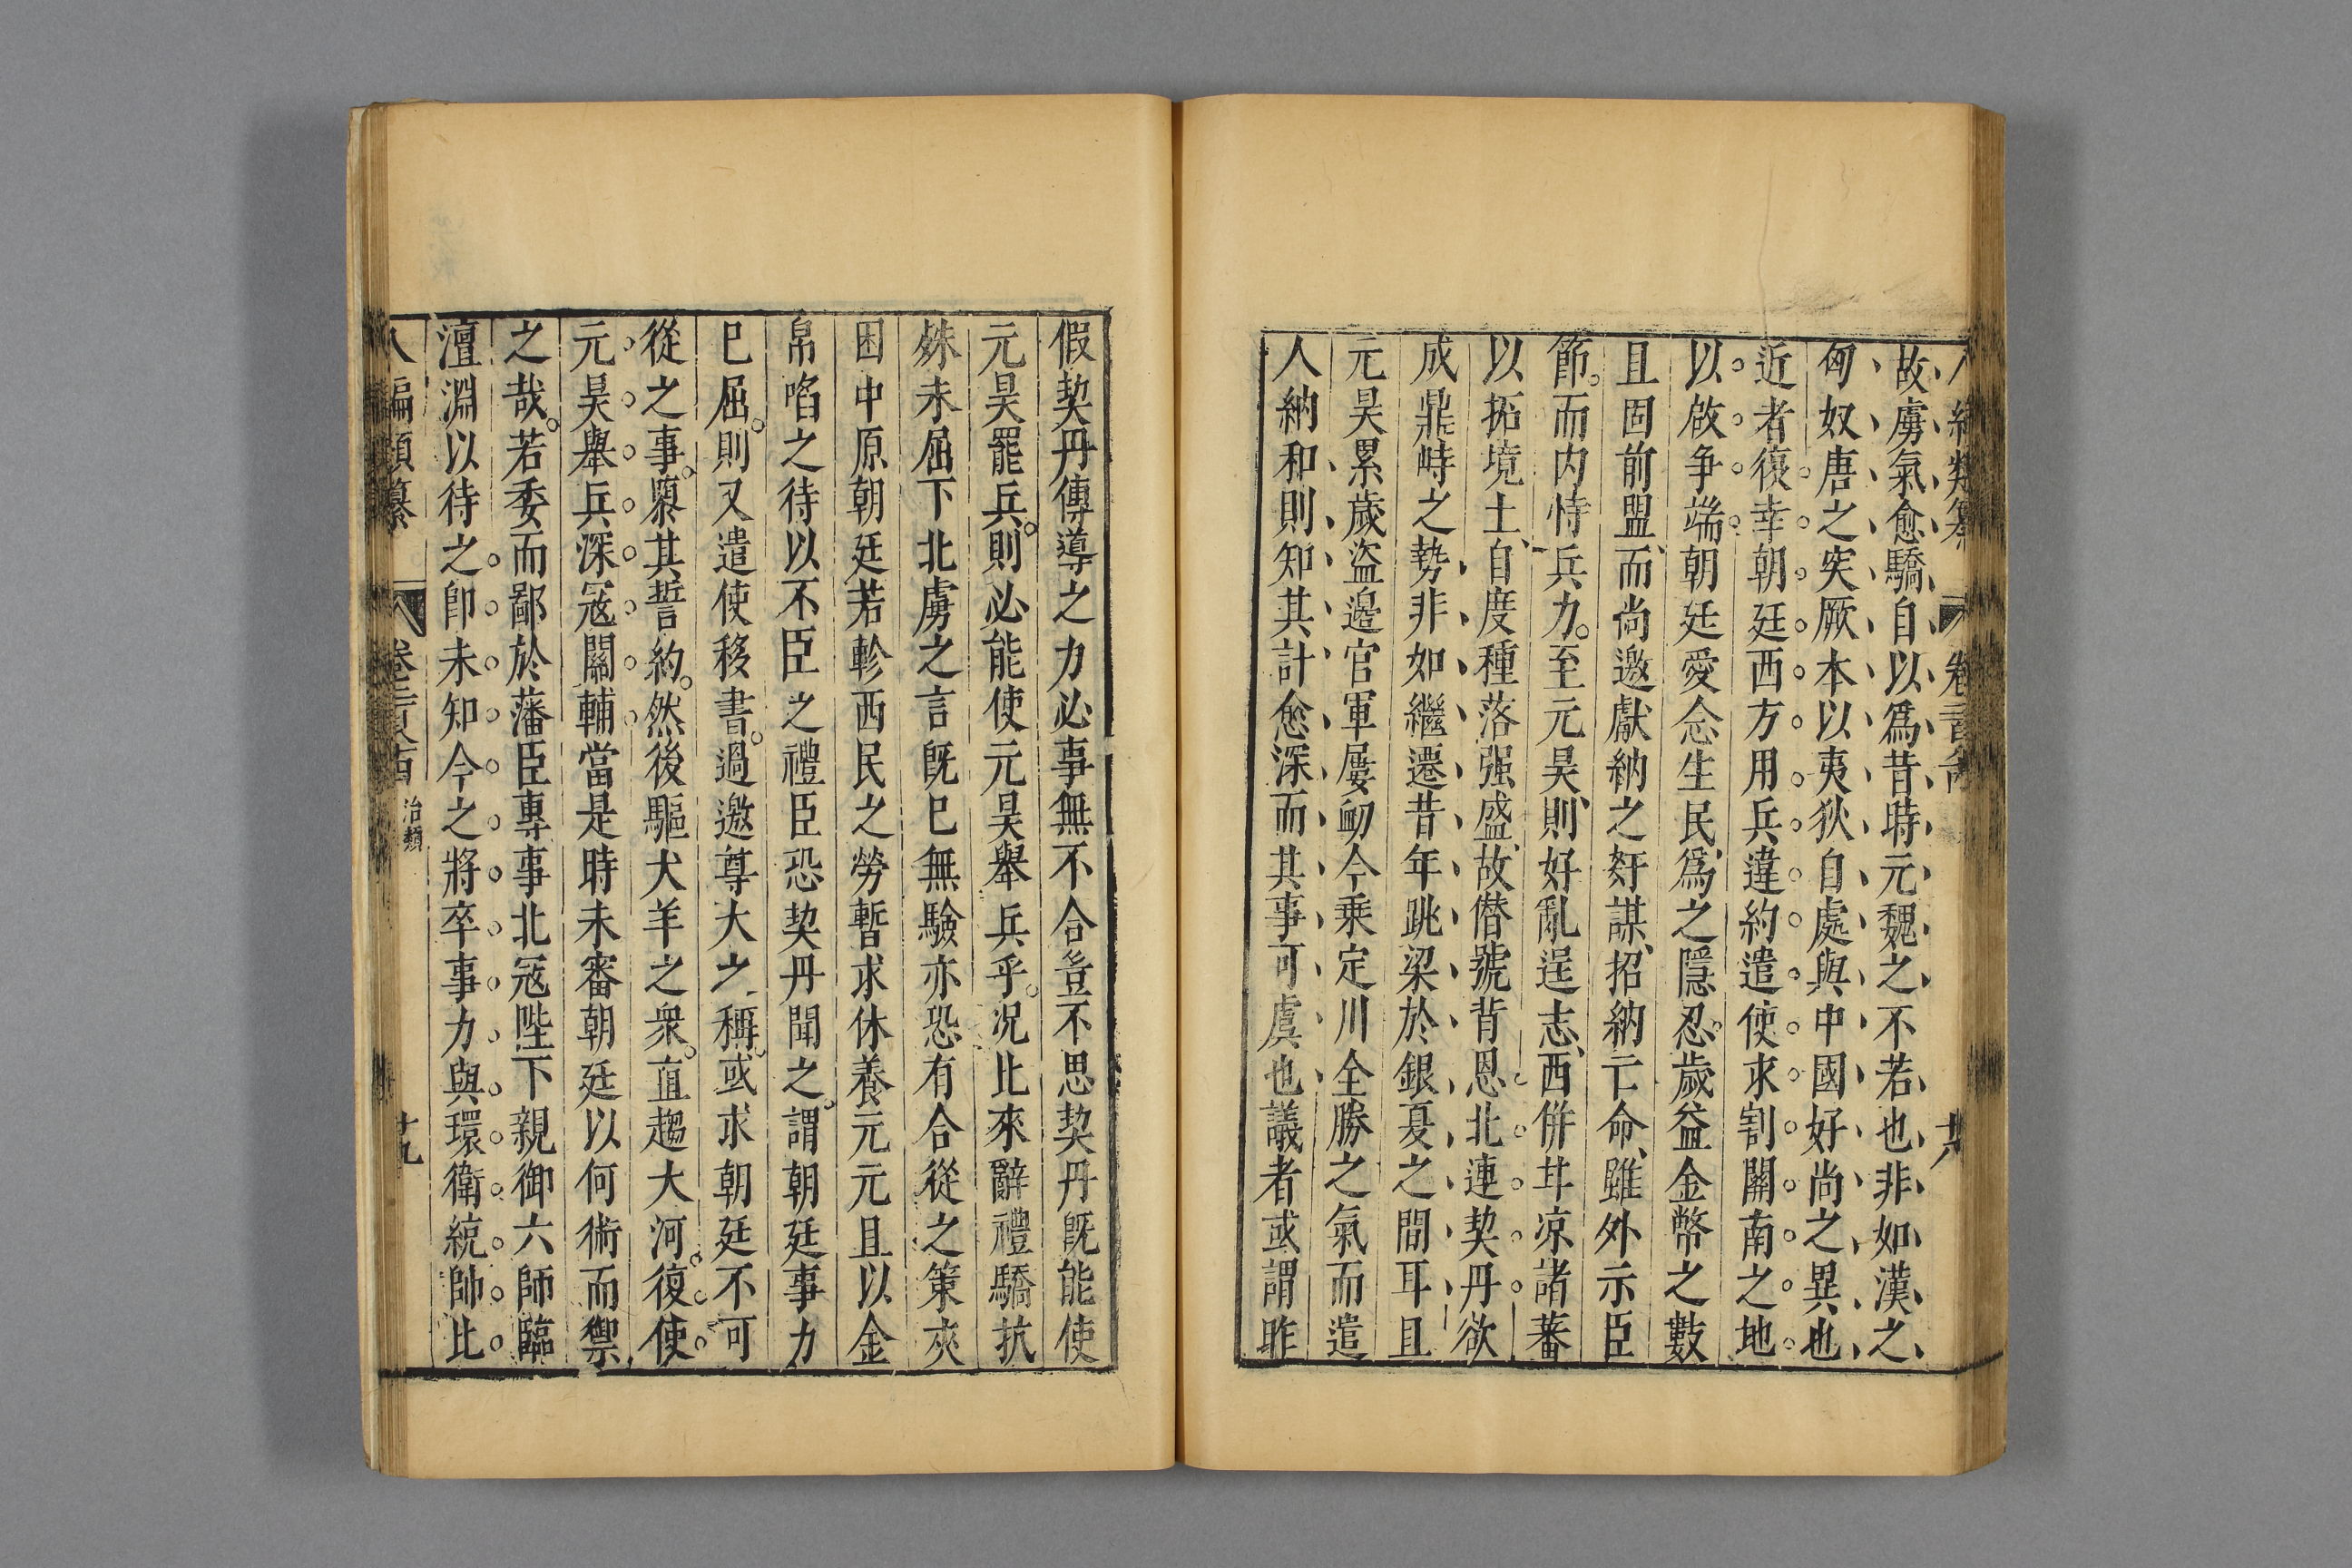 故虜氣愈驕自以爲昔時元魏之不若也非如漢之
匈奴唐之突厥本以夷狄自處與中國好尚之異也
近者復幸朝廷西方用兵違約遣使求割關南之地
以啟争端朝廷愛念生民爲之隱忍歲益金幣之數
且固前盟而尚邀獻納之
謀招納亡命雖外示臣
節而内恃兵力至元昊則好亂逞志西併甘凉諸蕃
以拓境土自度種落强盛故僣號背恩北連契丹欲
成鼎峙之勢非如繼遷昔年跳梁於銀夏之間耳且
元昊累歲盗邊官軍屢衂今乗定川全勝之氣而遣
人納和則知其計愈深而其事可虞也議者或謂昨
假契丹傳導之力必事無不合豈不思契丹旣能使
元昊罷兵則必能使元昊舉兵乎况比來辭禮驕抗
殊未屈下北虜之言旣已無驗亦恐有合從之策夾
困中原朝廷若軫西民之勞暫求休養元元且以金
帛啗之待以不臣之禮臣恐契丹聞之謂朝廷事力
已屈則又遣使移書過邀尊大之稱或求朝廷不可
從之事隳其誓約然後驅犬羊之衆直趨大河復使
元昊舉兵深冦關輔當是時未審朝廷以何術而禦
之哉若委而鄙於藩臣專事北冦陛下親御六師臨
澶淵以待之卽未知今之將卒事力與環衛統帥比
八編類纂 卷 治類 廿九